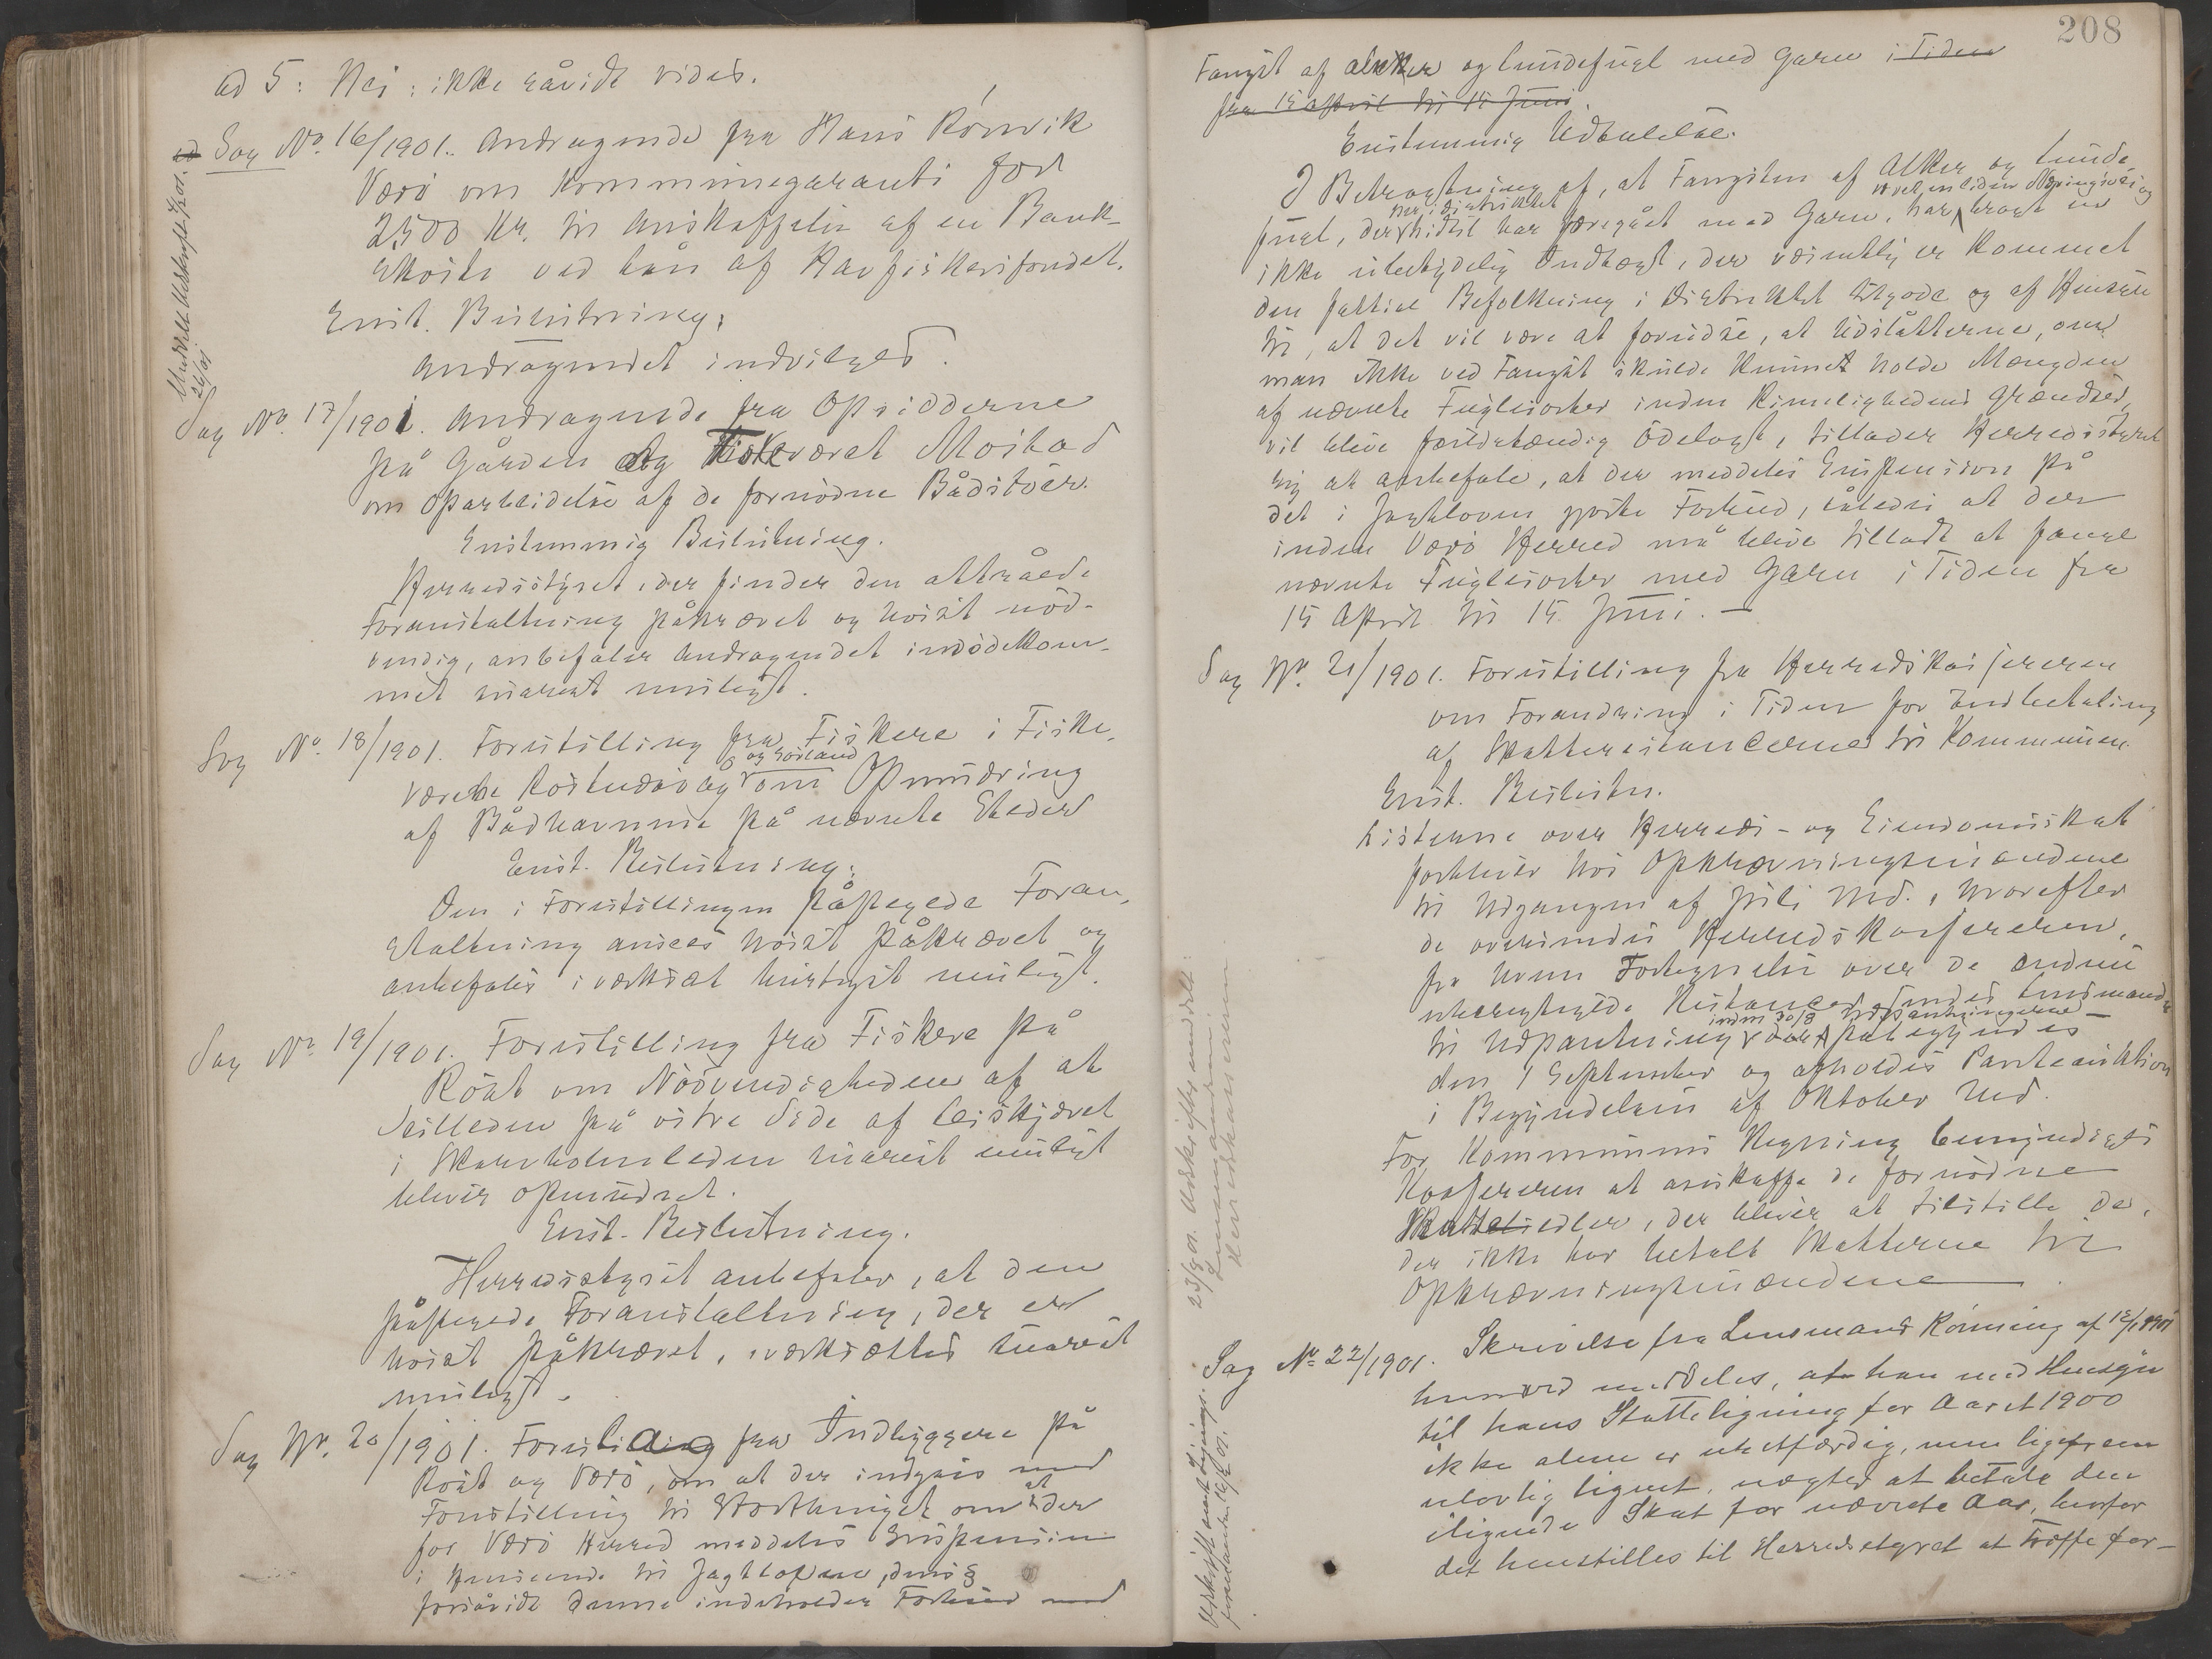 ad 5: Nei: ikke såvidt vides.
Sag No. 16/1901. Andragende fra Hans Rönvik
Værö om Kommunegaranti for
2500 Kr. til Anskaffelse af en Bank-
sköite ved Lån af Havfiskerifondet.
Enst. Beslutning:
Andragendet indvilges.
Meddelt Udskrift
Sag No. 17/1901. Andragende fra Opsidderne
på Gården og Fiskeværet Mostad
om Oparbeidelse af de fornödne Bådstöer.
Enstemmig Beslutning.
Herredsstyret, der finder den attråede
Foranstaltning påkrævet og höist nöd-
vendig, anbefaler Andragendet imödekom-
met snarest muligt.
Sag No. 18/1901. Forestilling fra Fiskere i Fiske-
værene Röstnæsvåg og Sörland om Opmudring
af Bådhavnene på nævnte Steder
Enst. Beslutning:
Den i Forestillingen påpegede Foran-
staltning ansees höist påkrævet og
anbefales iværksat hurtigst muligt.
Sag No. 19/1901. Forestilling fra Fiskere på
Röst om Nödvendigheden af at
Seilleden på östre Side af Leiskjæret
i Skarvholmleden snarest muligt
bliver opmudret.
Enst. Beslutning.
Herredsstyret anbefaler, at den
påpegede Foranstaltning, der er
höist påkrævet, iværksættes snarest
muligt.
Sag No. 20/1901. Forslag fra Indbyggere på
Röst og Værö, om at der indgåes med
Forestilling til Storthinget om at der
for Værö Herred meddeles Suspension
i Henseende til Jagtloven, dens §
forsåvidt denne indeholder Forbud mod
208
Fangst af alker og Lundefugl med Garn i Tiden
fra 15 April til 15 Juni.
Enstemmig Udtalelse.
I Betragtning af, at Fangsten af Alker og Lunde-
fugl, der her i distriktet hidtil har foregået med Garn, har været en liden Næringsvei og bragt en
ikke ubetydelig Indtægt, der væsentlig er kommet
den fattige Befolkning i Distriktet tilgode og af Hensyn
til, at det vil være at forudse, at Udslåtterne, om
man ikke ved Fangst skulde kunnet holde Mængden
af nævnte Fuglesorter inden Rimelighedens Grændser,
vil blive fuldstændig ödelagt, tillader Herredsstyret
sig at anbefale, at der meddeles Suspension på
det i Jagtloven gjorte Forbud, således at der
inden Værö Herred må blive tilladt at fange
nævnte Fuglesorter med Garn i Tiden fra
15 April til 15 Juni. —
Sag No. 21/1901. Forestilling fra Herredskasjereren
om Forandring i Tiden for Indbetaling
af Skatterestancerne til Kommunen.
Enst. Besluttn.
Listerne over Herreds- og Eiendomsskat
forbliver hos Opkrævningsmændene
til Udgangen af Juli Md., hvorefter
de oversendes Herredskasjereren,
fra hvem Fortegnelse over de endnu
uberigtigede Restancer sendes Lensmanden
til Udpantning inden 30/8 Udpantningerne påbegyndes
den 1 September og afholdes Panteauktion
i Begyndelsen af Oktober Md.
For Kommunens Regning bemyndiges
Kasjereren at anskaffe de fornödne
Skattesedler, der bliver at tilstille de,
der ikke har betalt Skatterne til
Opkrævningsmændene
23/8 01. Udskrifter meddelt:
Lensmanden
Herredskassereren
Sag No. 22/1901. Skrivelse fra Lensmand Rönning af 12/1 1901
hvorved meddeles, at han med Hensyn
til hans Skatteligning for Aaret 1900
ikke alene er uretfærdig, men ligefrem
ulovlig lignet, nægter at betale den
ilignede Skat for nævnte Aar, hvorfor
det henstilles til Herredsstyret at træffe for-